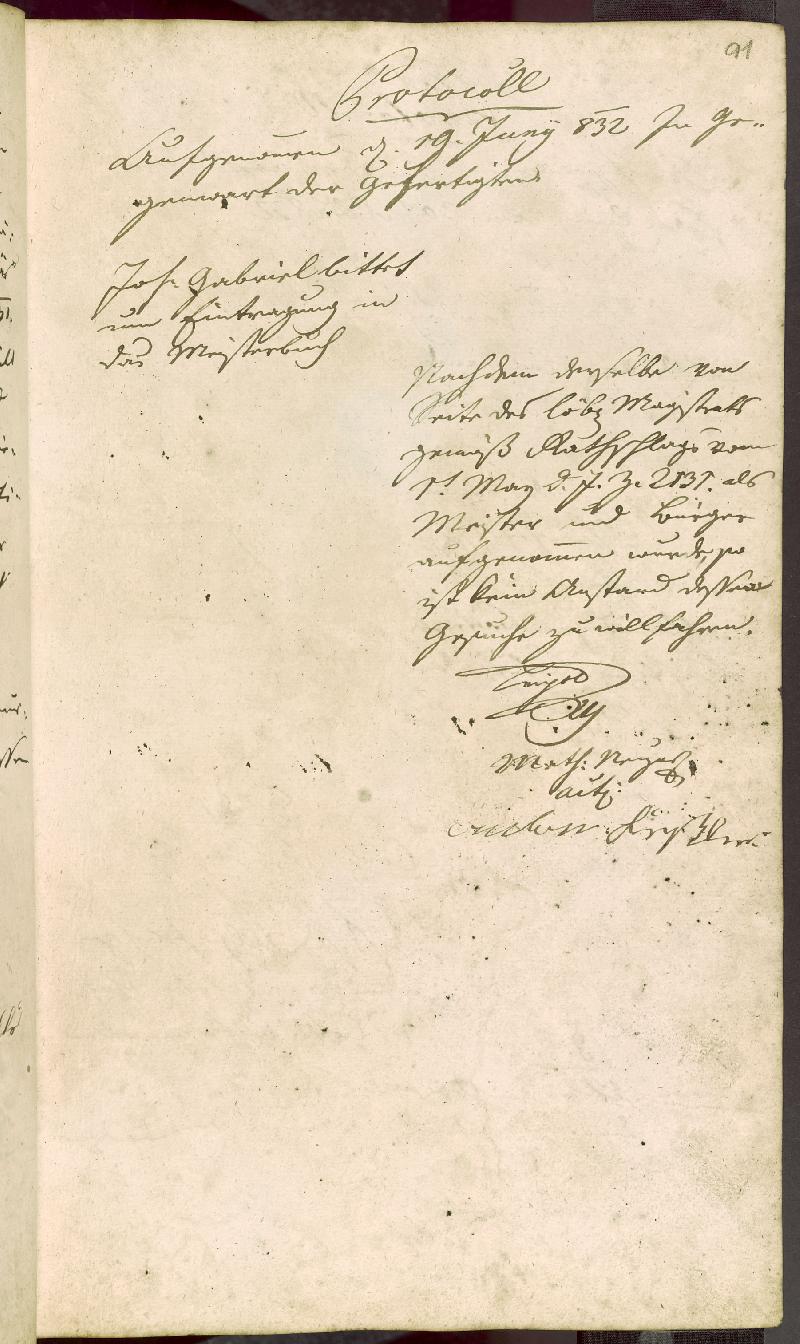 91
Protocoll
Aufgenom̅en d. 19. Juny 832 In Ge-
genwart der Gefertigten
Joh: Gabriel bittet
um Eintragung in
das Meisterbuch
Nachdem derselbe von
Seite des löbl Magistrats
gemäß Rathschlags vom
1t May d. J. Z. 2131. als
Meister und Bürger
aufgenom̅en wurde, so
ist kein Anstand dessen
Gesuche zu willfahren.
Math:
Anton